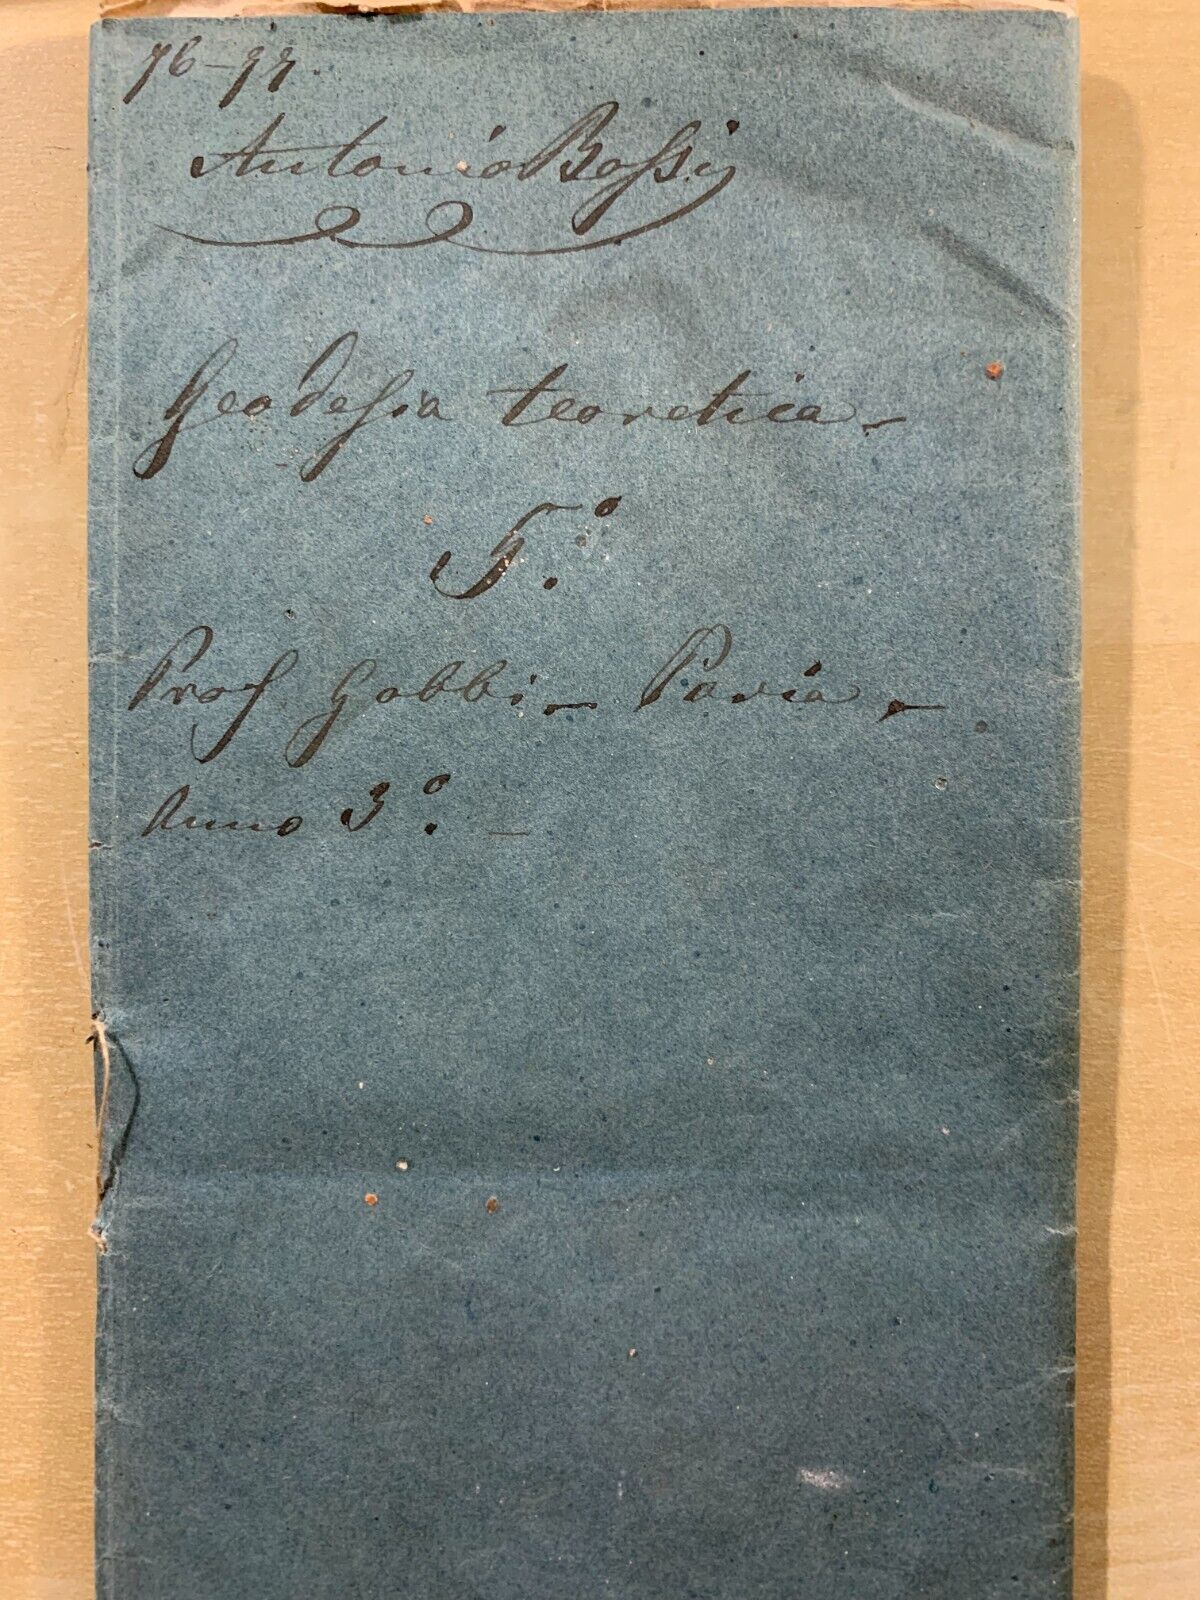 76-77.
Antonio Bossi
Geodesia teoretica -
5.º
Prof. Gobbi - Pavia. -
Anno 3.º -